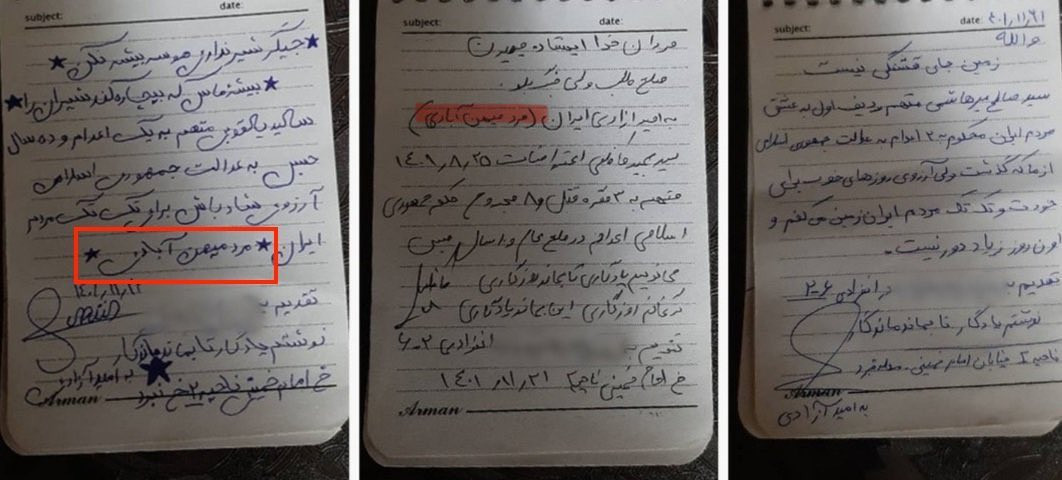 subject:
date:
★ جیگر شیر نداری هوس بیشه نکن ★
★ بیشه ماس که بیچاره کند شیران را
سعید یعقوبی متهم به یک اعدام و ده سال
حبس به عدالت جمهوری اسلامی
آرزوی شاد باش برای تک تک مردم
ایران ★ مرد میهن آبادی ★
۱۴۰۱/۱۱/
تقدیم به
نوشتم یادگار تا بماند ماندگار
به امید آزادی
خ امام خمینی ناحیه ۲ خ نبرد
Arman
subject:
date:
مردان خدا ایستاده میمیرن
صلح طلب ولی جنگجو
به امید آزادی ایران (مرد میهن آبادی)
سید مجید کاظمی اعتراضات ۱۴۰۱/۸/۲۵
متهم به ۳ فقره قتل و ۸ مجروح حکم جمهوری
اسلامی اعدام در ملع عام و ۱۰ سال حبس
می نویسم یادگاری تا بماند روزگاری
گر نماندم روزگاری این بماند یادگاری
تقدیم به انفرادی ۲-۶
خ امام خمینی ناحیه ۲ ۱۴۰۱/۱۱/۲۱
Arman
subject:
date: ۱۴۰۱/۱۱/۲۱
هو الله
زمین جای قشنگی نیست
سید صالح میرهاشمی متهم ردیف اول به عشق
مردم ایران محکوم به ۲ اعدام به عدالت جمهوری اسلامی
از ما که گذشت ولی آرزوی روزهای خوب برای
خودت و تک تک مردم ایران زمین می کنم و
اون روز زیاد دور نیست.
تقدیم به در انفرادی ۲-۶
نوشتم یادگار تا بماند ماندگار
ناحیه ۲ خیابان امام خمینی
Arman
به امید آزادی